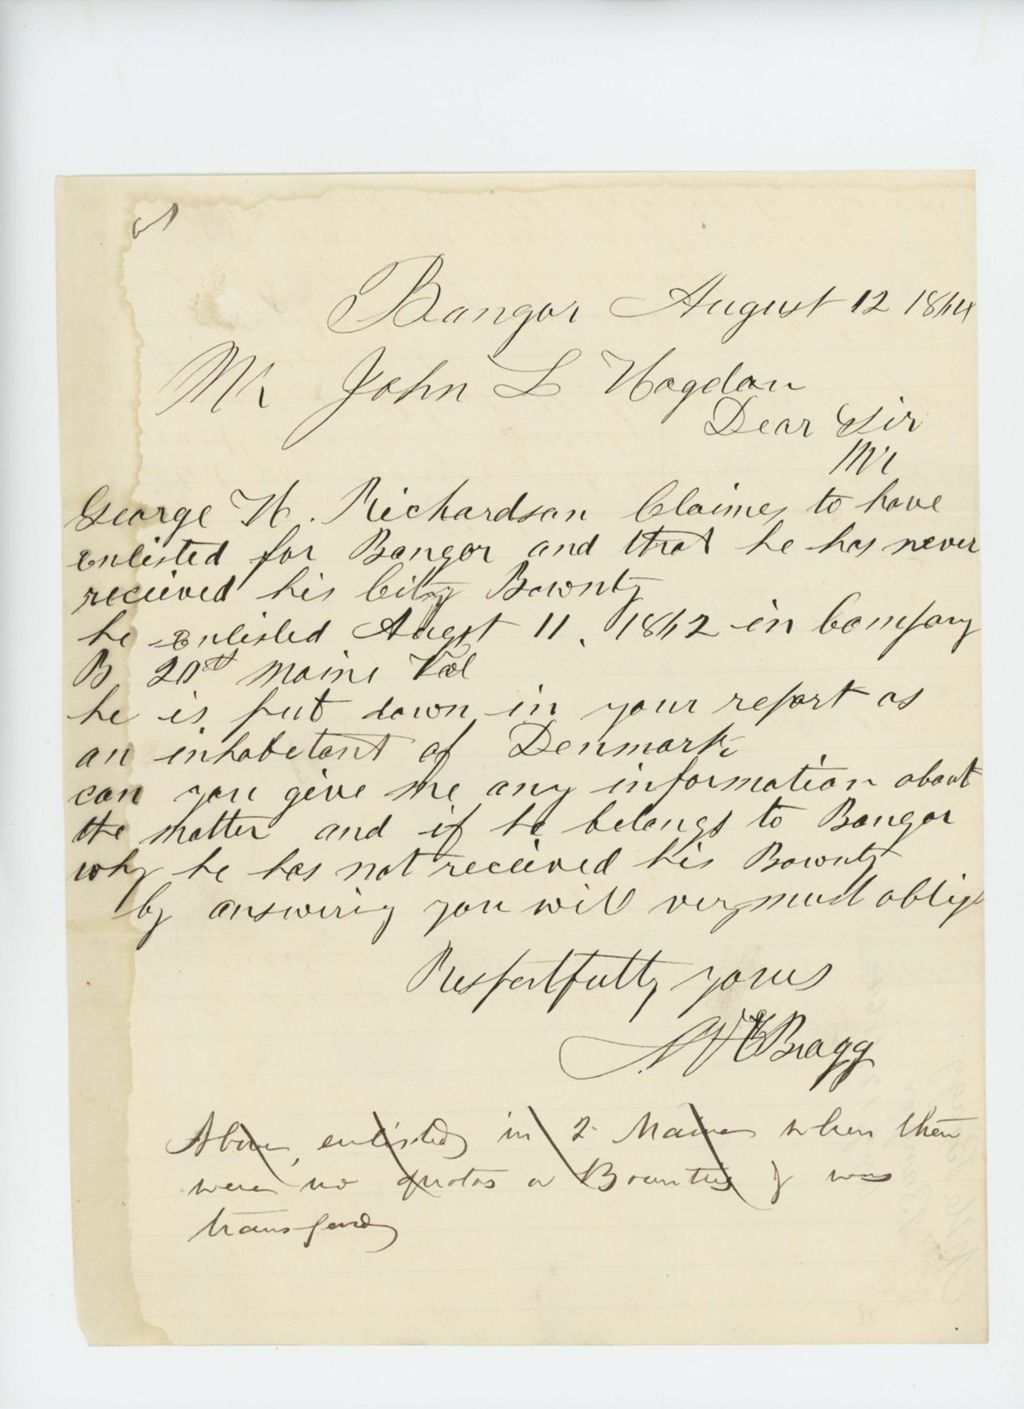 Bangor August 12 1864
Mr John L Hogdon
Dear Sir
Mr
George H. Richardson Claimes to have
enlisted for Bangor and that he has never
recieved his City Bownty
he enlisted Augst 11, 1862 in Company
B 20th Maine Vol
he is put down in your report as
an inhabetant of Denmark
can you give me any information about
the matter and if he belongs to Bangor
why he has not recieved his Bownty
by answering you will very much oblige
Respectfully yours
Bragg
Above, enlisted in 2 Maine when there
were no quotas or Bounties & was
transfered